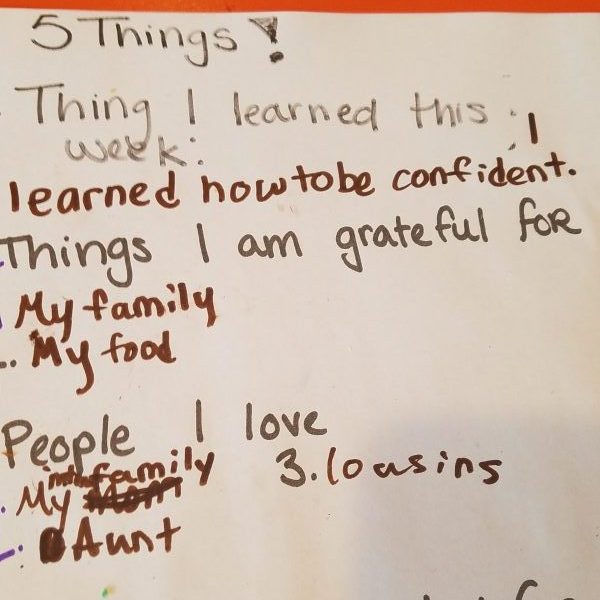 5 Things!
Thing I learned this : I
week:
learned how to be confident.
Things I am grateful for
My family
My food
People I love
My family 3. Cousins
Aunt